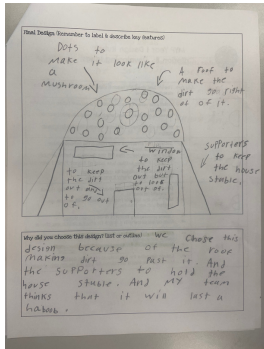 Final Design (Remember to label & describe key features!)
DOTS to
make it look like
a
mushroom
A roof to
make the
dirt go right
of of it.
supporters
to keep
the house
stable.
window
to keep
the dirt
out but
to look
out of.
to keep
the dirt
out and
to go out
of.
Why did you choose this design? (list or outline)
We chose this
design because of the roof
making dirt go past it. And
the supporters to hold the
house stable. And my team
thinks that it will last a
haboob.